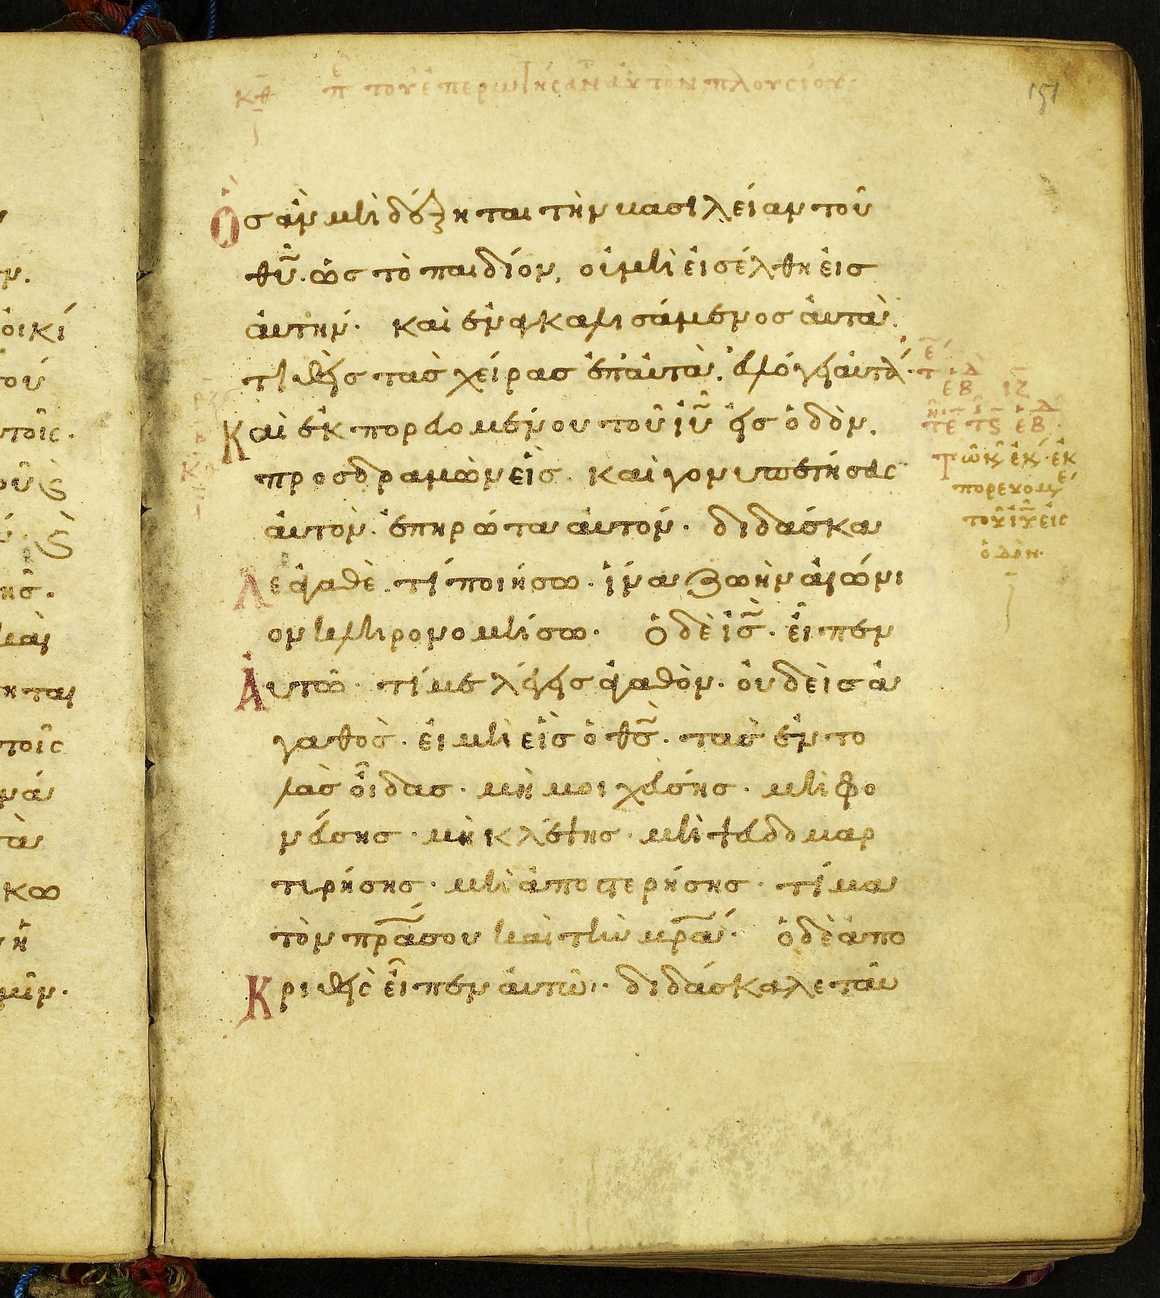 κθ π τοῦ ἐπερωτήσαντος αὐτὸν πλουσίου
151
Ὃσ ἂν μὴ δέξηται τὴν βασιλείαν τοῦ
θῦ· ὡς τὸ παιδίον, οὐ μὴ εἰσέλθη εἰσ
ἀυτήν· καὶ ἐναγκαλισάμενοσ ἀυτὰ.
τιθεὶς τὰσ χείρασ ἐπ' ἀυτὰ, ἐυλόγει ἀυτά·
Καὶ ἐκπορευομένου τοῦ ἰῦ εἰσ ὁδὸν,
προσδραμὼν εἷς καὶ γονυπετήσασ
ἀυτὸν. ἐπηρώτα ἀυτόν· διδάσκα
Λε ἀγαθὲ. τί ποιήσω· ἵνα ζωὴν αἰώνι
ον κληρονομήσω· ὁ δὲ ἰσ̃· εἶπεν
Ἀυτῶ· τί με λέγεισ ἀγαθὸν· οὐδεὶσ ἀ
γαθὸσ· εἰ μὴ εἷσ ὁ θσ̃· τασ ἐντο
λὰσ οἶδασ· μὴ μοιχεύσησ· μὴ φο
νεύσησ· μὴ κλέψησ· μὴ ψευδομαρ
τιρήσησ· μὴ ἀποστερήσησ· τίμα
τὸν πρ̃ασου καὶ τὴν μρ̃α· ὁ δὲ ἀπο
Κριθεὶς εἶπεν ἀυτῶ· διδάσκαλε ταῦ
ΕΒ ΙΖ
ΤΕ ΤϚ ΕΒ
Τῶ κ ἐκ· ἐκ
πορευομ
τοῦ ἰῦ εἰς
ὁδὸν·